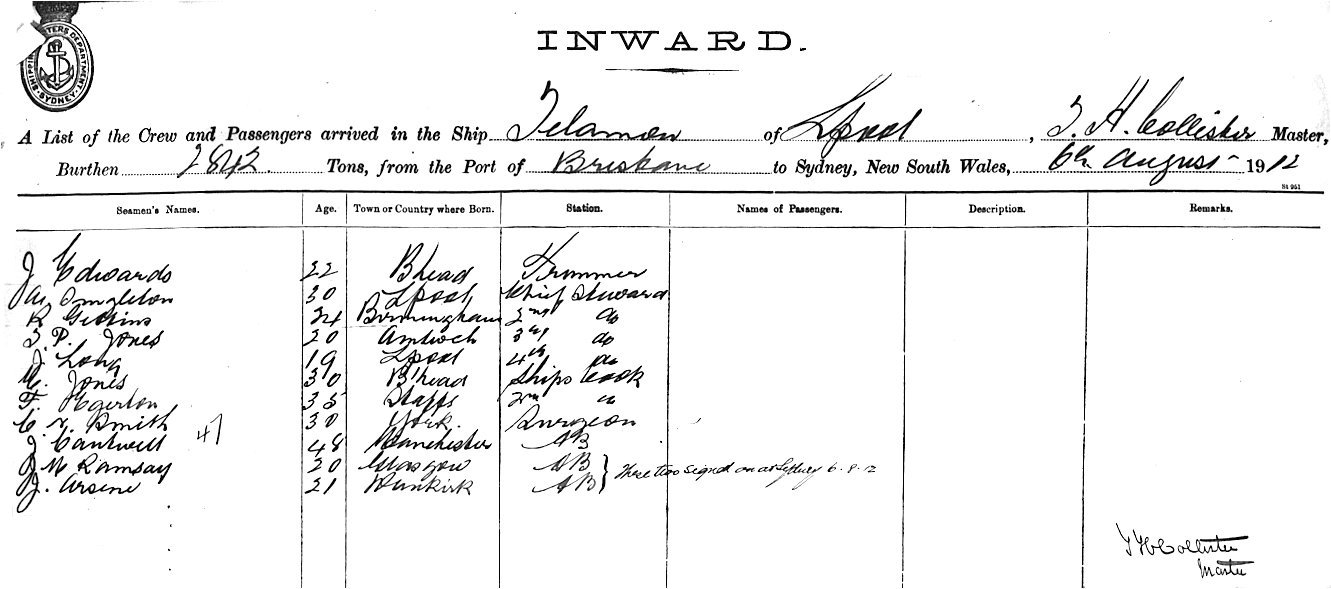 SHIPPING MASTERS DEPARTMENT SYDNEY
INWARD.
A List of the Crew and Passengers arrived in the Ship Telamon of Lpool, T. H. Collister Master,
Burthen 2842 Tons, from the Port of Brisbane to Sydney, New South Wales, 6th August 1912
St 951
Seamen's Names. Age. Town or Country where Born. Station. Names of Passengers. Description. Remarks.
J Edwards 22 Bhead Trimmer
Singleton 30 Lpool Chief Steward
R Gittins 24 Birmingham 2nd do
T. P. Jones 20 Amlwch 3rd do
J. Long 19 Lpool 4th do
Jones 30 B'head Ships Cook
F. Egerton 35 Staffs 2nd "
C. N. Smith 30 York. Surgeon
J. Cantwell 47 48 Manchester AB
J M Ramsay 20 Glasgow AB
These two signed on at Sydney 6.8.12
J. Arsene 21 Dunkirk AB
T H Collister
Master